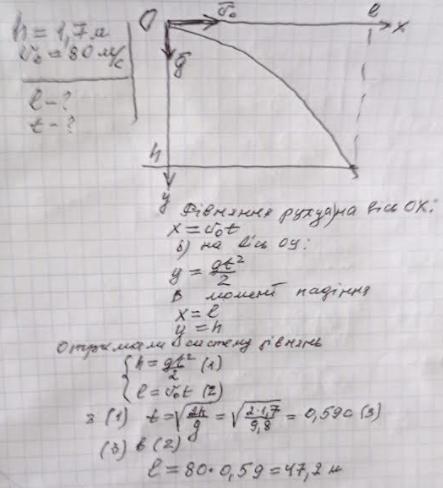 h = 1,7 м
v₀ = 80 м/с
l - ?
t - ?
O v₀ l x
g
h
y
Рівняння руху а) на вісь OX:
x = v₀t
б) на вісь OY:
y = gt²/2
В момент падіння
x = l
y = h
Отримали систему рівнянь
{ h = gt²/2 (1)
l = v₀t (2)
з (1) t = √(2h/g) = √(2·1,7/9,8) = 0,59 с (3)
(3) в (2)
l = 80 · 0,59 = 47,2 м